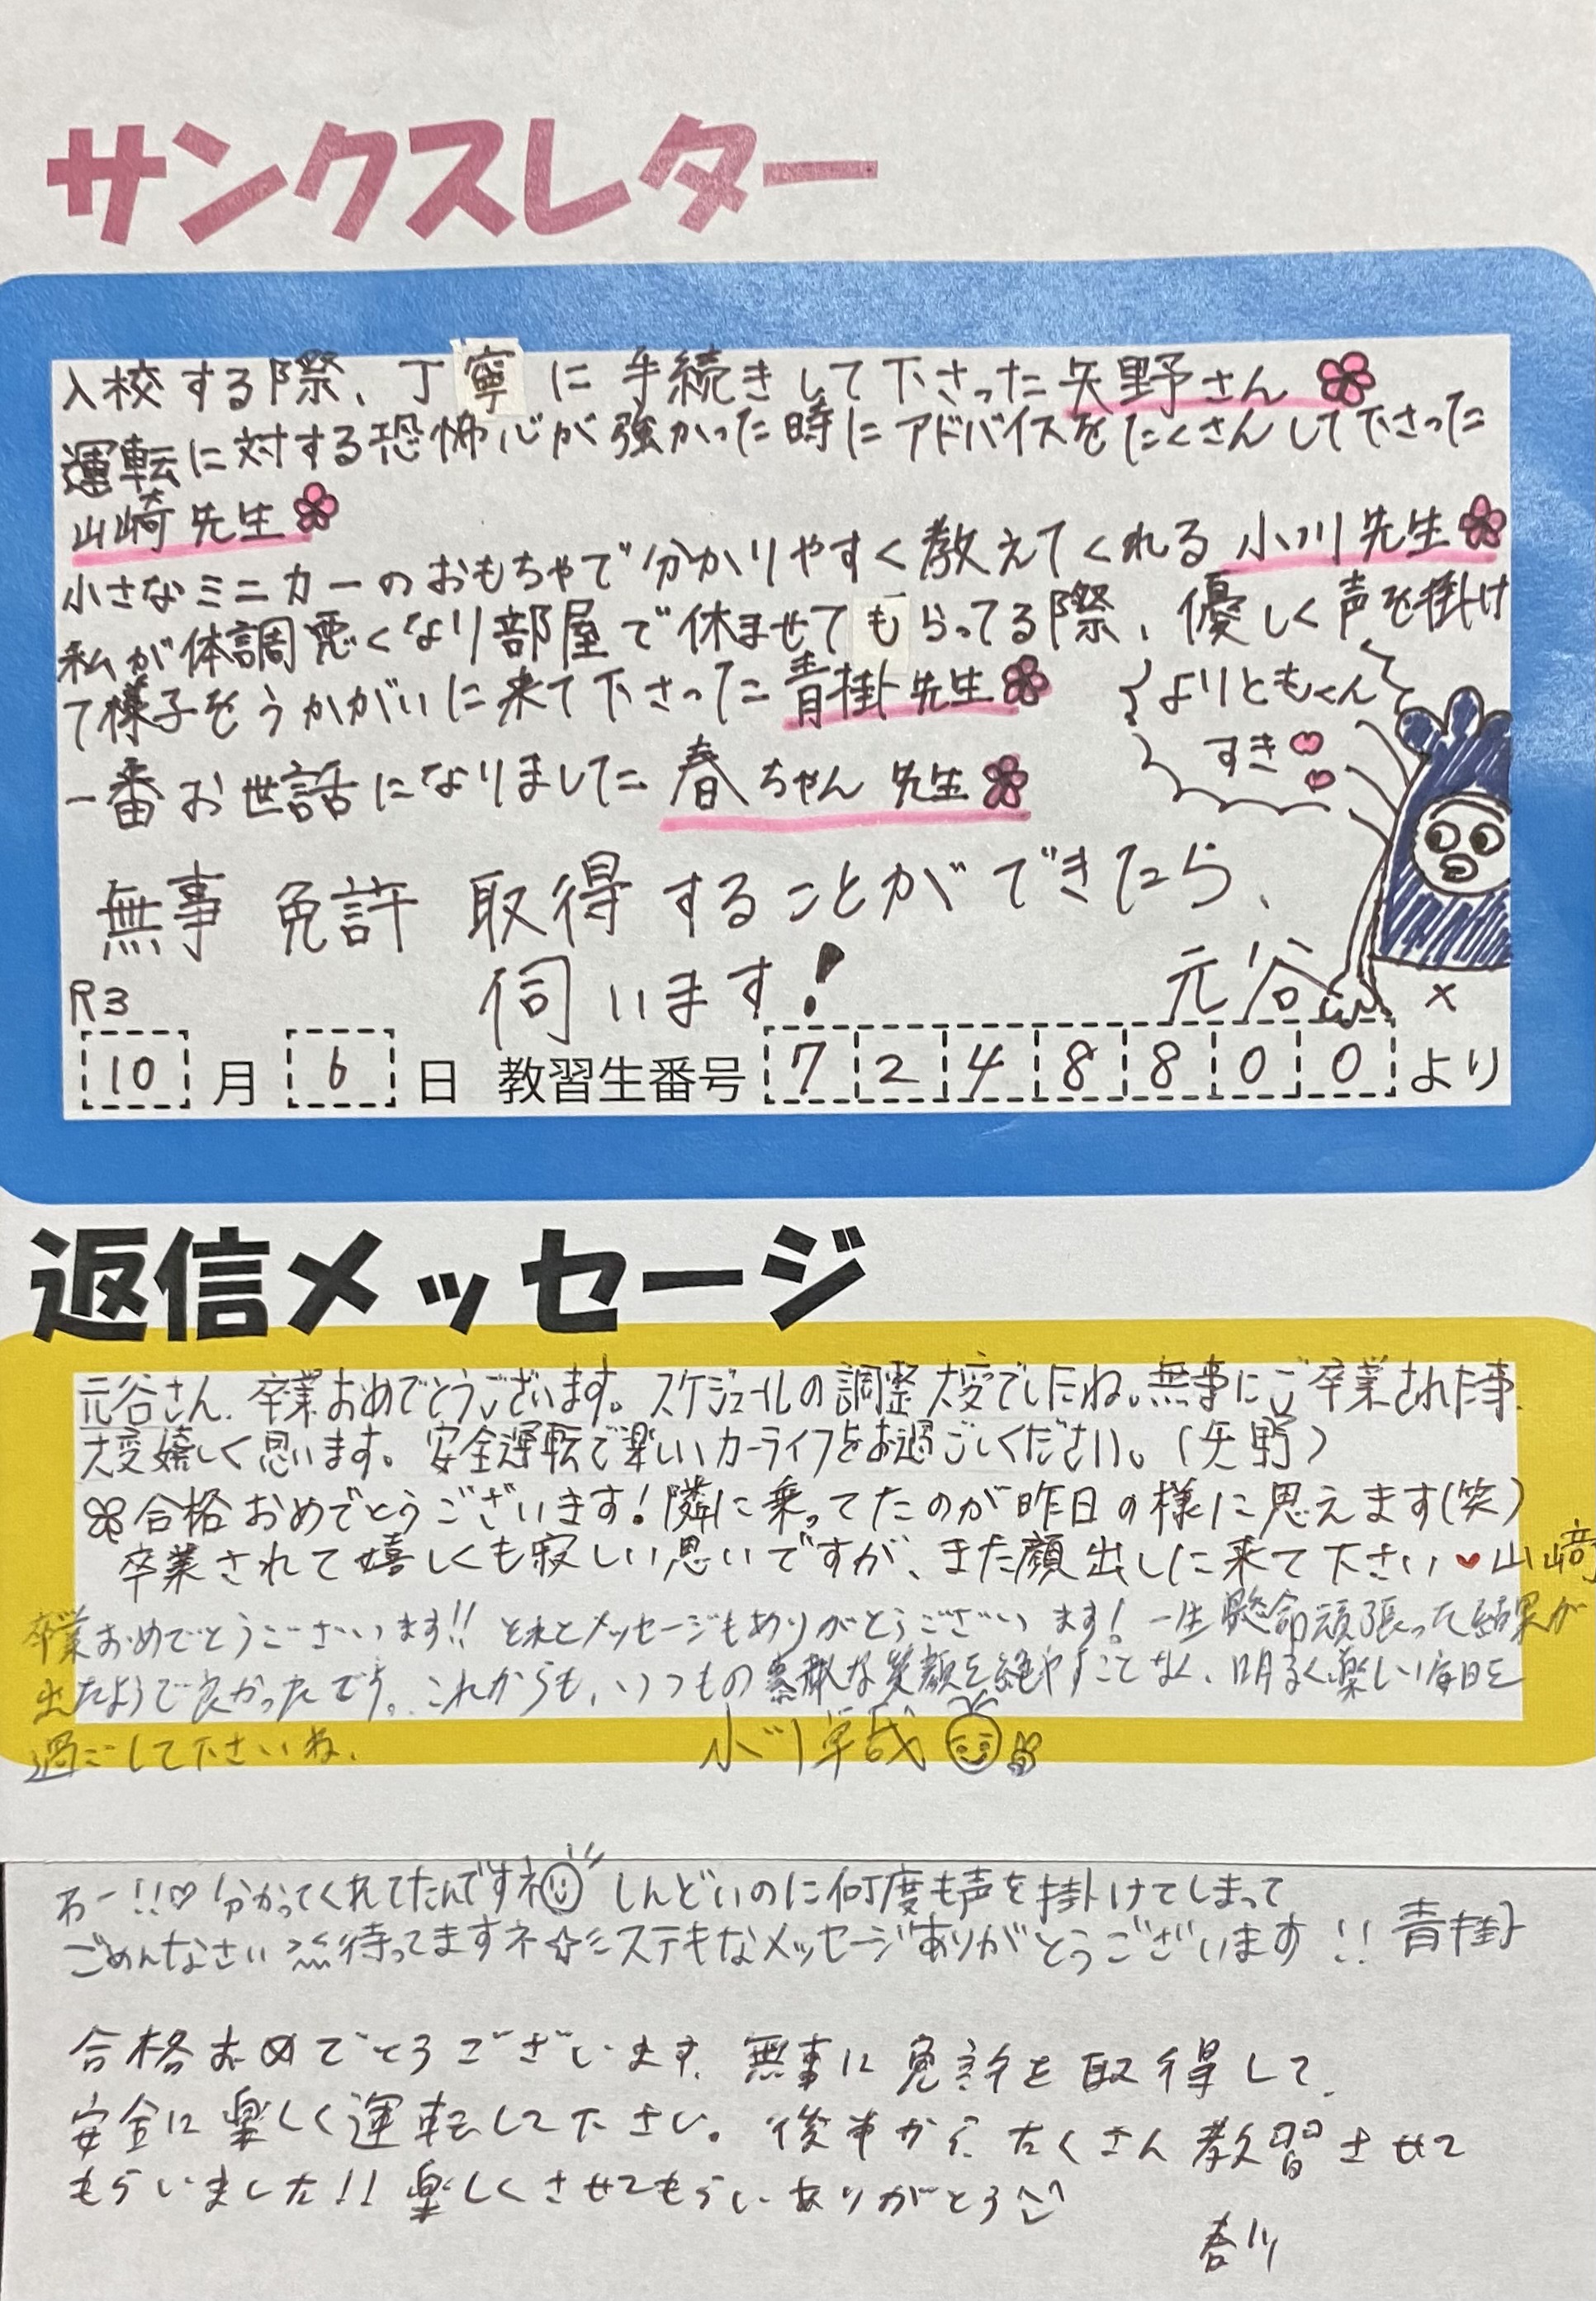 サンクスレター
入校する際、丁寧に手続きして下さった矢野さん
運転に対する恐怖心が強かった時にアドバイスをたくさんして下さった
山崎先生
小さなミニカーのおもちゃで分かりやすく教えてくれる小川先生
私が体調悪くなり部屋で休ませてもらってる際、優しく声を掛け
て様子をうかがいに来て下さった青掛先生
よりともくん
すき
一番お世話になりました春ちゃん先生
無事免許取得することができたら、
伺います!
元谷
R3
10月6日 教習生番号 7248800より
返信メッセージ
元谷さん、卒業おめでとうございます。スケジュールの調整大変でしたね。無事にご卒業された事、
大変嬉しく思います。安全運転で楽しいカーライフをお過ごしください。(矢野)
合格おめでとうございます!隣に乗ってたのが昨日の様に思えます(笑)
卒業されて嬉しくも寂しい思いですが、また顔出しに来て下さい♥山崎
卒業おめでとうございます!! それとメッセージもありがとうございます! 一生懸命頑張った結果が
出たようで良かったです。これからも、いつもの素敵な笑顔を絶やすことなく、明るく楽しい毎日を
過ごして下さいね。
小川
わー!!♡分かってくれてたんですネ しんどいのに何度も声を掛けてしまって
ごめんなさい 待ってますネ☆ステキなメッセージありがとうございます!! 青掛
合格おめでとうございます。無事に免許を取得して、
安全に楽しく運転して下さい。後半からたくさん教習させて
もらいました!! 楽しくさせてもらいありがとう
春川